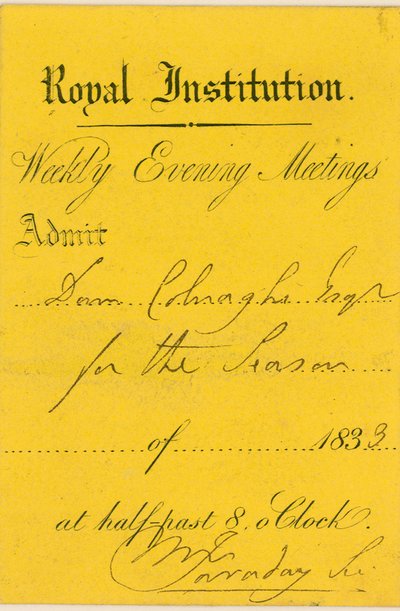 Royal Institution.
Weekly Evening Meetings
Admit
Dom Colnaghi Esqr
for the Season
of 1833
at half-past 8, o'Clock.
M Faraday